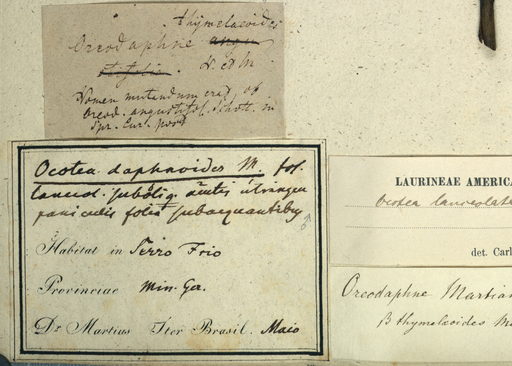 thymelaeoides
Oreodaphne angu
stifolia. N. et M.
Nomen mutandum erat, ob
Oreod. angustifol. Schott. in
Spr. Cur. post
Ocotea daphnoides M. fol.
lanceol. subobliq. acutis utrinque
paniculis folia subaequantibus
Habitat in Serro Frio
Provinciae Min. Ger.
Dr Martius Iter Brasil. Maio
LAURINEAE AMERICA
Ocotea lanceolata
det. Carl
Oreodaphne Martian
β thymelaeoides M